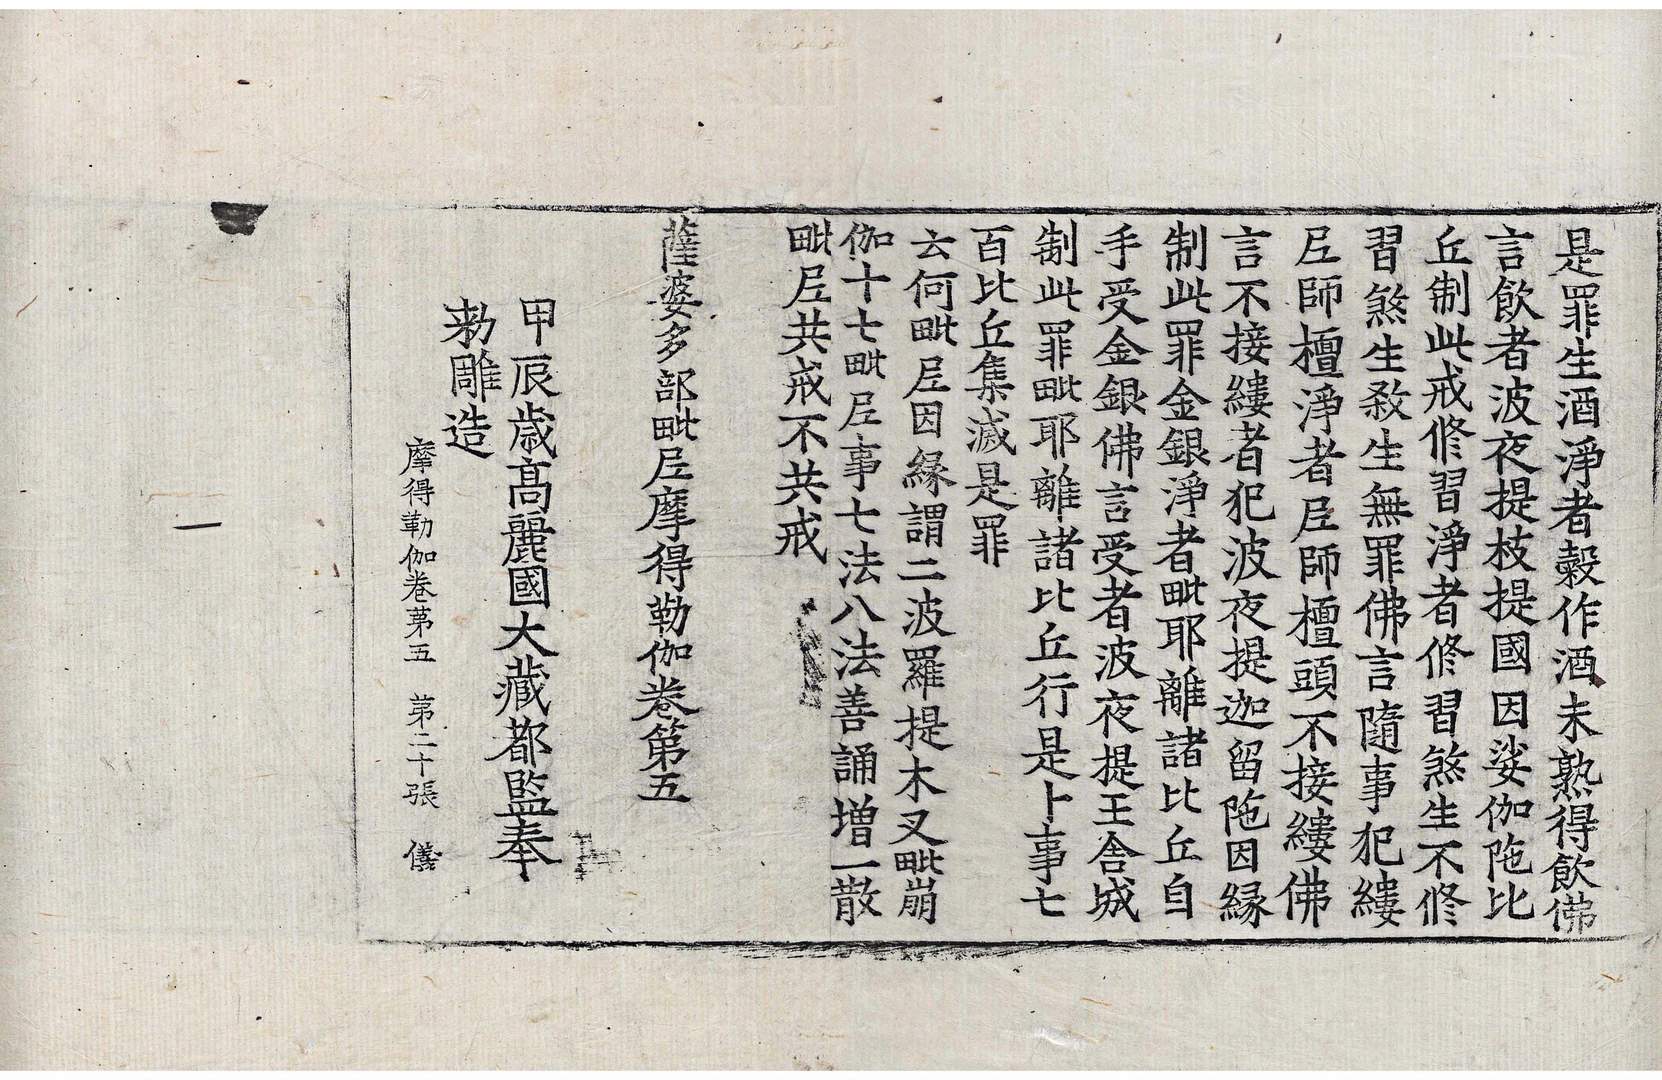 是罪生酒淨者穀作酒未熟得飲佛
言飲者波夜提枝提國因娑伽陁比
丘制此戒修習淨者修習煞生不修
習煞生殺生無罪佛言隨事犯縷
尼師檀淨者尼師檀頭不接縷佛
言不接縷者犯波夜提迦留陁因緣
制此罪金銀淨者毗耶離諸比丘自
手受金銀佛言受者波夜提王舍城
制此罪毗耶離諸比丘行是十事七
百比丘集滅是罪
云何毗尼因緣謂二波羅提木叉毗崩
伽十七毗尼事七法八法善誦增一散
毗尼共戒不共戒
薩婆多部毗尼摩得勒伽卷第五
甲辰歲高麗國大藏都監奉
勅雕造
摩得勒伽卷第五 第二十張 儀